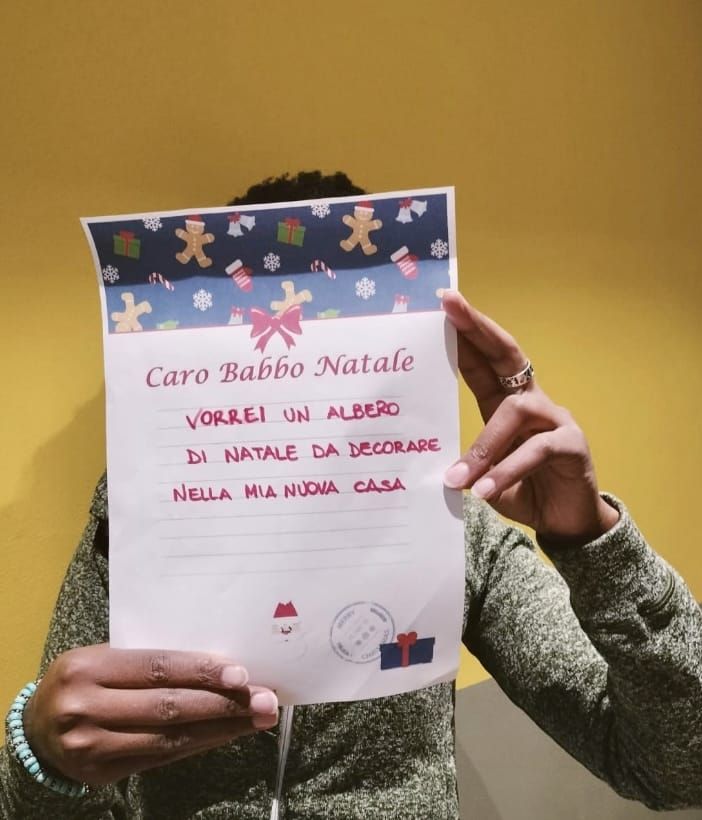 Caro Babbo Natale
VORREI UN ALBERO
DI NATALE DA DECORARE
NELLA MIA NUOVA CASA
MERRY
CHRISTMAS